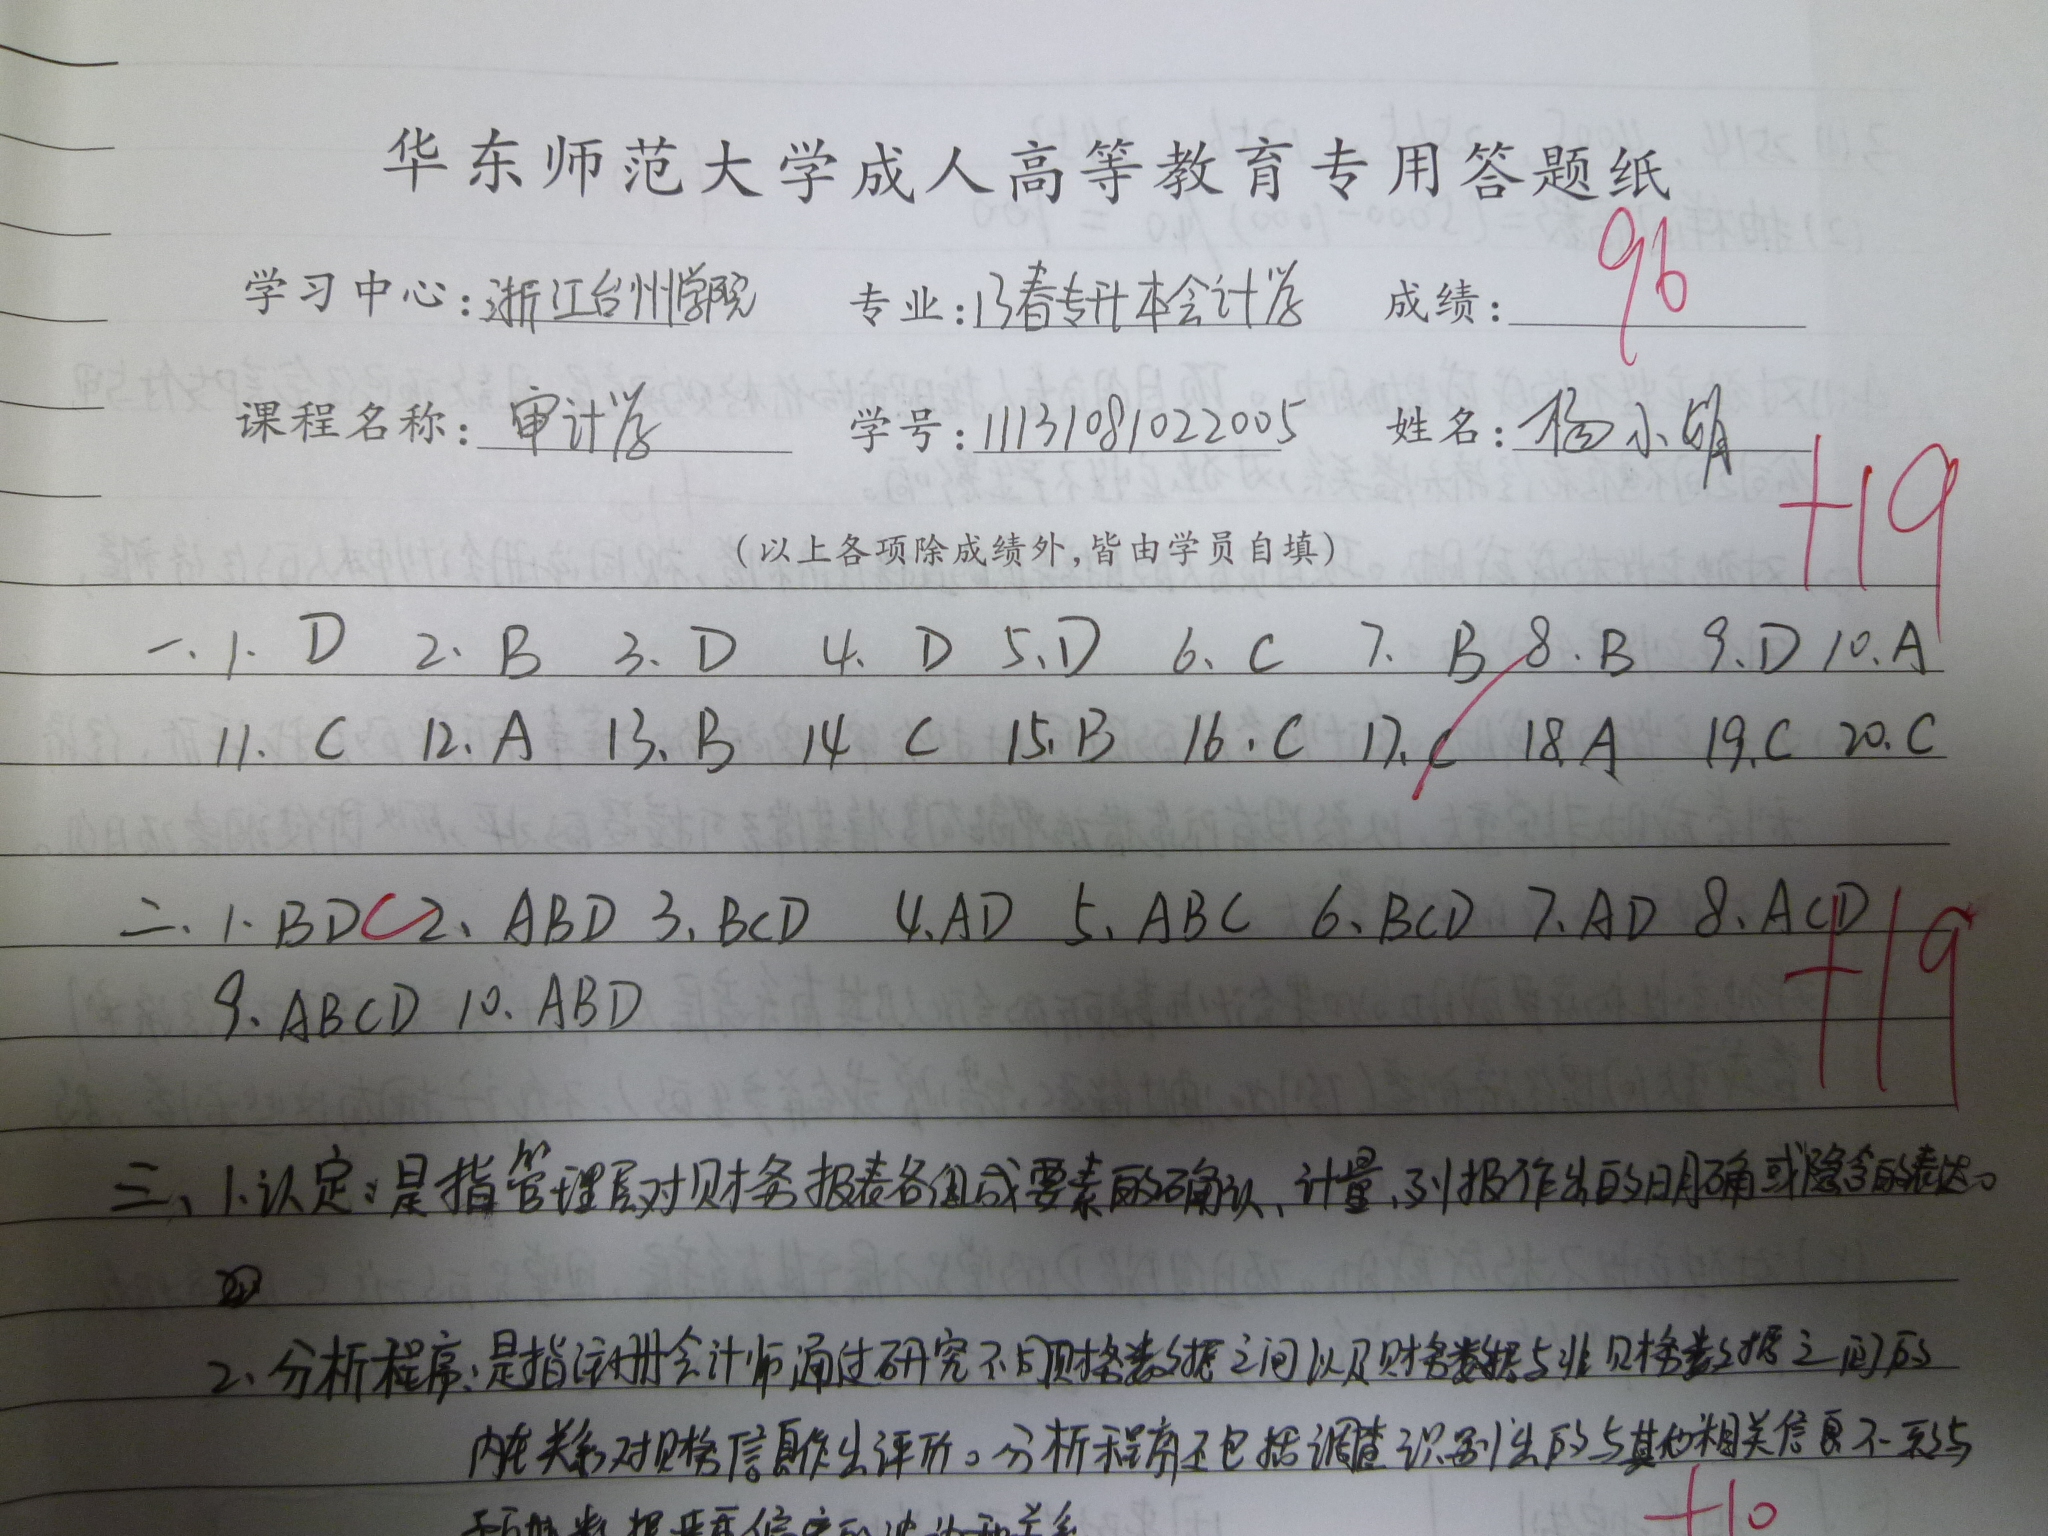 华东师范大学成人高等教育专用答题纸
学习中心:浙江台州学院 专业:13春专升本会计学 成绩:96
课程名称:审计学 学号:11131081022005 姓名:杨小萌
+19
(以上各项除成绩外,皆由学员自填)
一、1. D 2. B 3. D 4. D 5. D 6. C 7. B 8. B 9. D 10. A
11. C 12. A 13. B 14 C 15. B 16. C 17. C 18. A 19. C 20. C
二、1. BDC 2、ABD 3、BCD 4、AD 5、ABC 6、BCD 7、AD 8、ACD
+19
9、ABCD 10、ABD
三、1.认定:是指管理层对财务报表各组成要素的确认、计量、列报作出的明确或隐含的表达。
2、分析程序:是指注册会计师通过研究不同财务数据之间以及财务数据与非财务数据之间的
内在关系对财务信息作出评价。分析程序还包括调查识别出的与其他相关信息不一致或与
预期数据严重偏离的波动和关系
+10